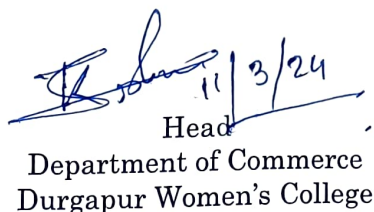 11/3/24
Head
Department of Commerce
Durgapur Women's College